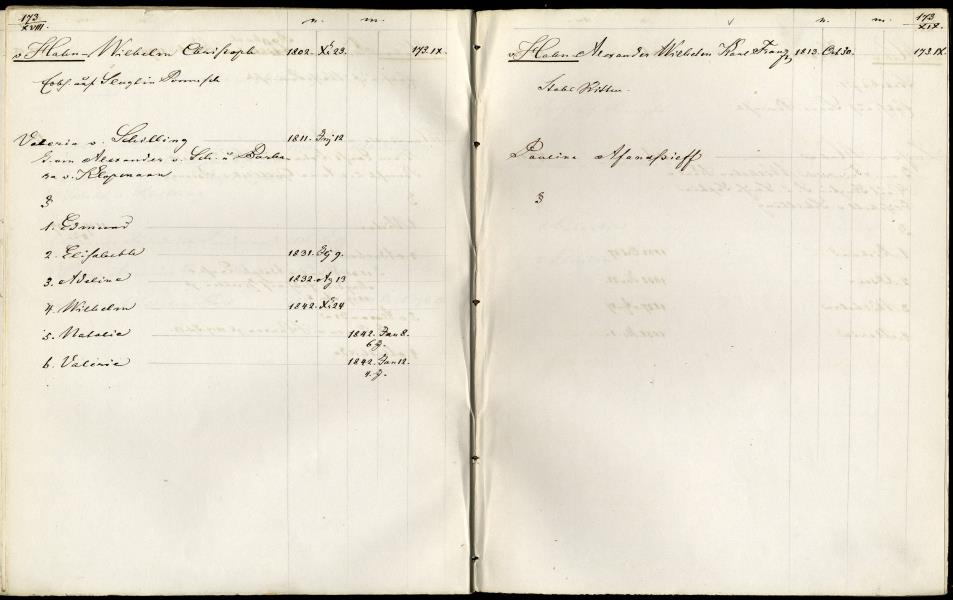 173
XVIII.
n. m.
v Hahn Wilhelm Christoph 1802. Xr 23. 173. IX.
Erbh. auf
Valeria v. Schilling 1811. Juny 12
T. von Alexander v. Sch. u. Barba-
ra v. Klopmann
§
1. Edmund
2. Elisabeth 1831. 9.
3. Adeline 1832. Ag 13
4. Wilhelm 1842. Xr 24
5. Natalie 1842. Jan 8.
6 J.
6. Valerie 1842. Jan 12.
4. J.
173
XIX.
n. m.
v Hahn Alexander Wilhelm Karl Franz 1813. Oct 30. 173. IX.
Stabs Rittm.
Pauline Afanassieff
§